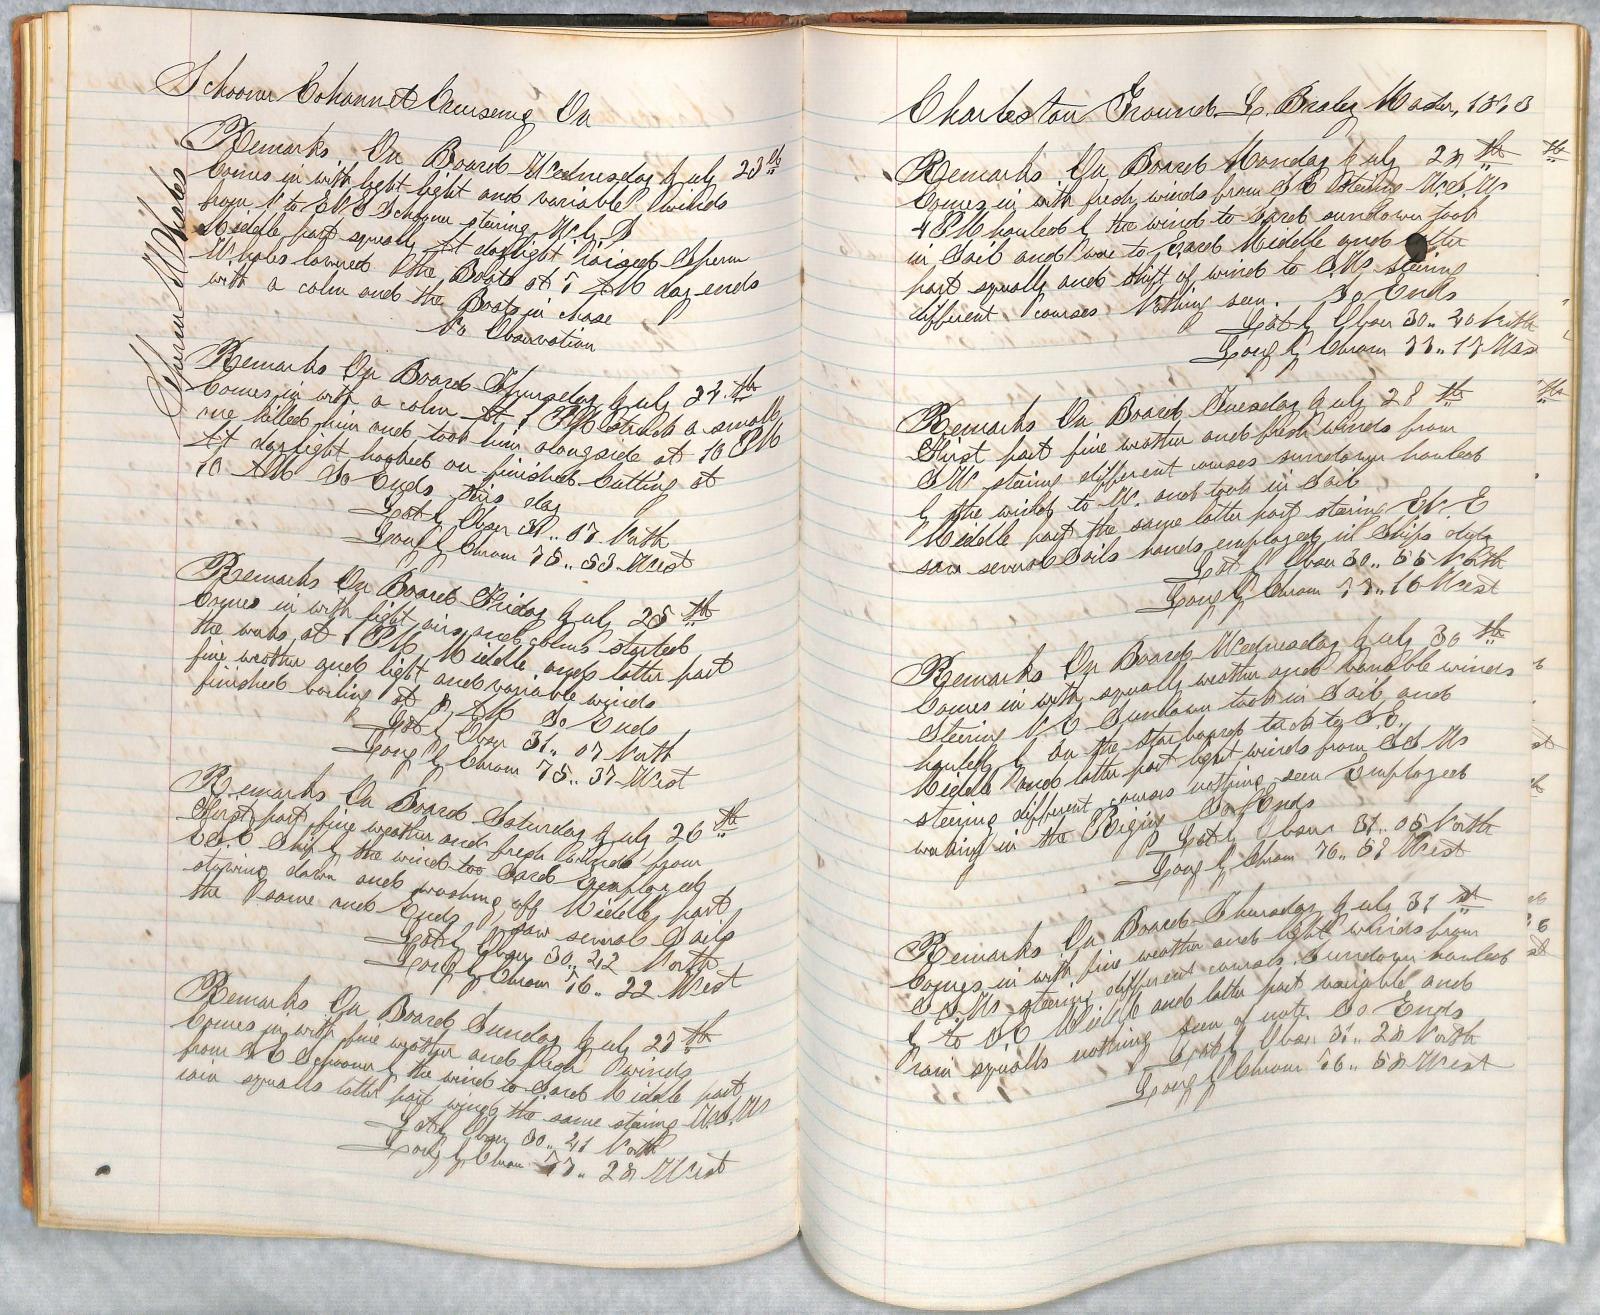 Schooner Cohannet Cruiseing On
Remarks On Board Wednesday July 23th
Comes in with light light and variable winds
from N to ENE Schooner stering W by S
Middle part squally At daylight raised Sperm
Whales lowred the Boats at 5 AM day ends
with a calm and the Boats in chase
No Observation
Sperm Whales
Remarks On Board Thursday July 24th
Comes in with a calm At 1 PM struck a small
one killed him and took him alongside at 10 PM
At daylight hooked on finished Cutting at
10 AM So Ends this day
Lat by Obser 31.. 07 North
Long by Chrom 75.. 53 West
Remarks On Board Friday July 25th
Comes in with light airs and calms started
the works at 1 PM Middle and latter part
fine weather and light and variable winds
finished boiling at 8 AM So Ends
Lat by Obser 31.. 07 North
Long by Chrom 75.. 37 West
Remarks On Board Saturday July 26th
First part fine weather and fresh winds from
ESE Ship by the wind too Sard Employed
stowing down and washing off Middle part
the same and Ends saw several Sails
Lat by Obser 30.. 42 North
Long by Chrom 76.. 22 West
Remarks On Board Sunday July 27th
Comes in with fine weather and fresh winds
from SE Schooner by the wind to Sard Middle part
rain squalls latter part winds the same stering W.S.W
Lat by Obser 30.. 21 North
Long by Chrom 77.. 28 West
Charleston Ground L. Braley Master, 1873
Remarks On Board Monday July 28th
Comes in with fresh winds from SE Stering WSW
4 PM hauled by the wind to Sard sundown took
in Sail and wore to Eard Middle and latter
part squally and shift of wind to SW stering
different courses Nothing seen. So Ends
Lat by Obser 30.. 20 North
Long by Chrom 77.. 17 Wes
Remarks On Board Tuesday July 28th
First part fine weather and fresh winds from
SW stering different courses sundown hauled
by the wind to W. and took in Sail
Middle part the same latter part stering ENE
saw several Sails hands employed in Ships duty
Lat by Obser 30.. 55 North
Long by Chrom 77.. 16 West
Remarks On Board Wednesday July 30th
Comes in with squally weather and variable winds
Stering N.E Sundown took in Sail and
hauled by on the starboard tack to S.E..
Middle and latter part light winds from SSW
steering different courses nothing seen Employed
working in the Rigin So Ends
Lat by Obser 31.. 05 North
Long by Chrom 76.. 57 West
Remarks On Board Thursday July 31st
Comes in with fine weather and light winds from
S.S.W stering different courses. Sundown hauled
by to SE Middle and latter part variable and
rain squalls nothing seen of note So Ends
Lat by Obser 31.. 28 North
Long by Chrom 76.. 58 West